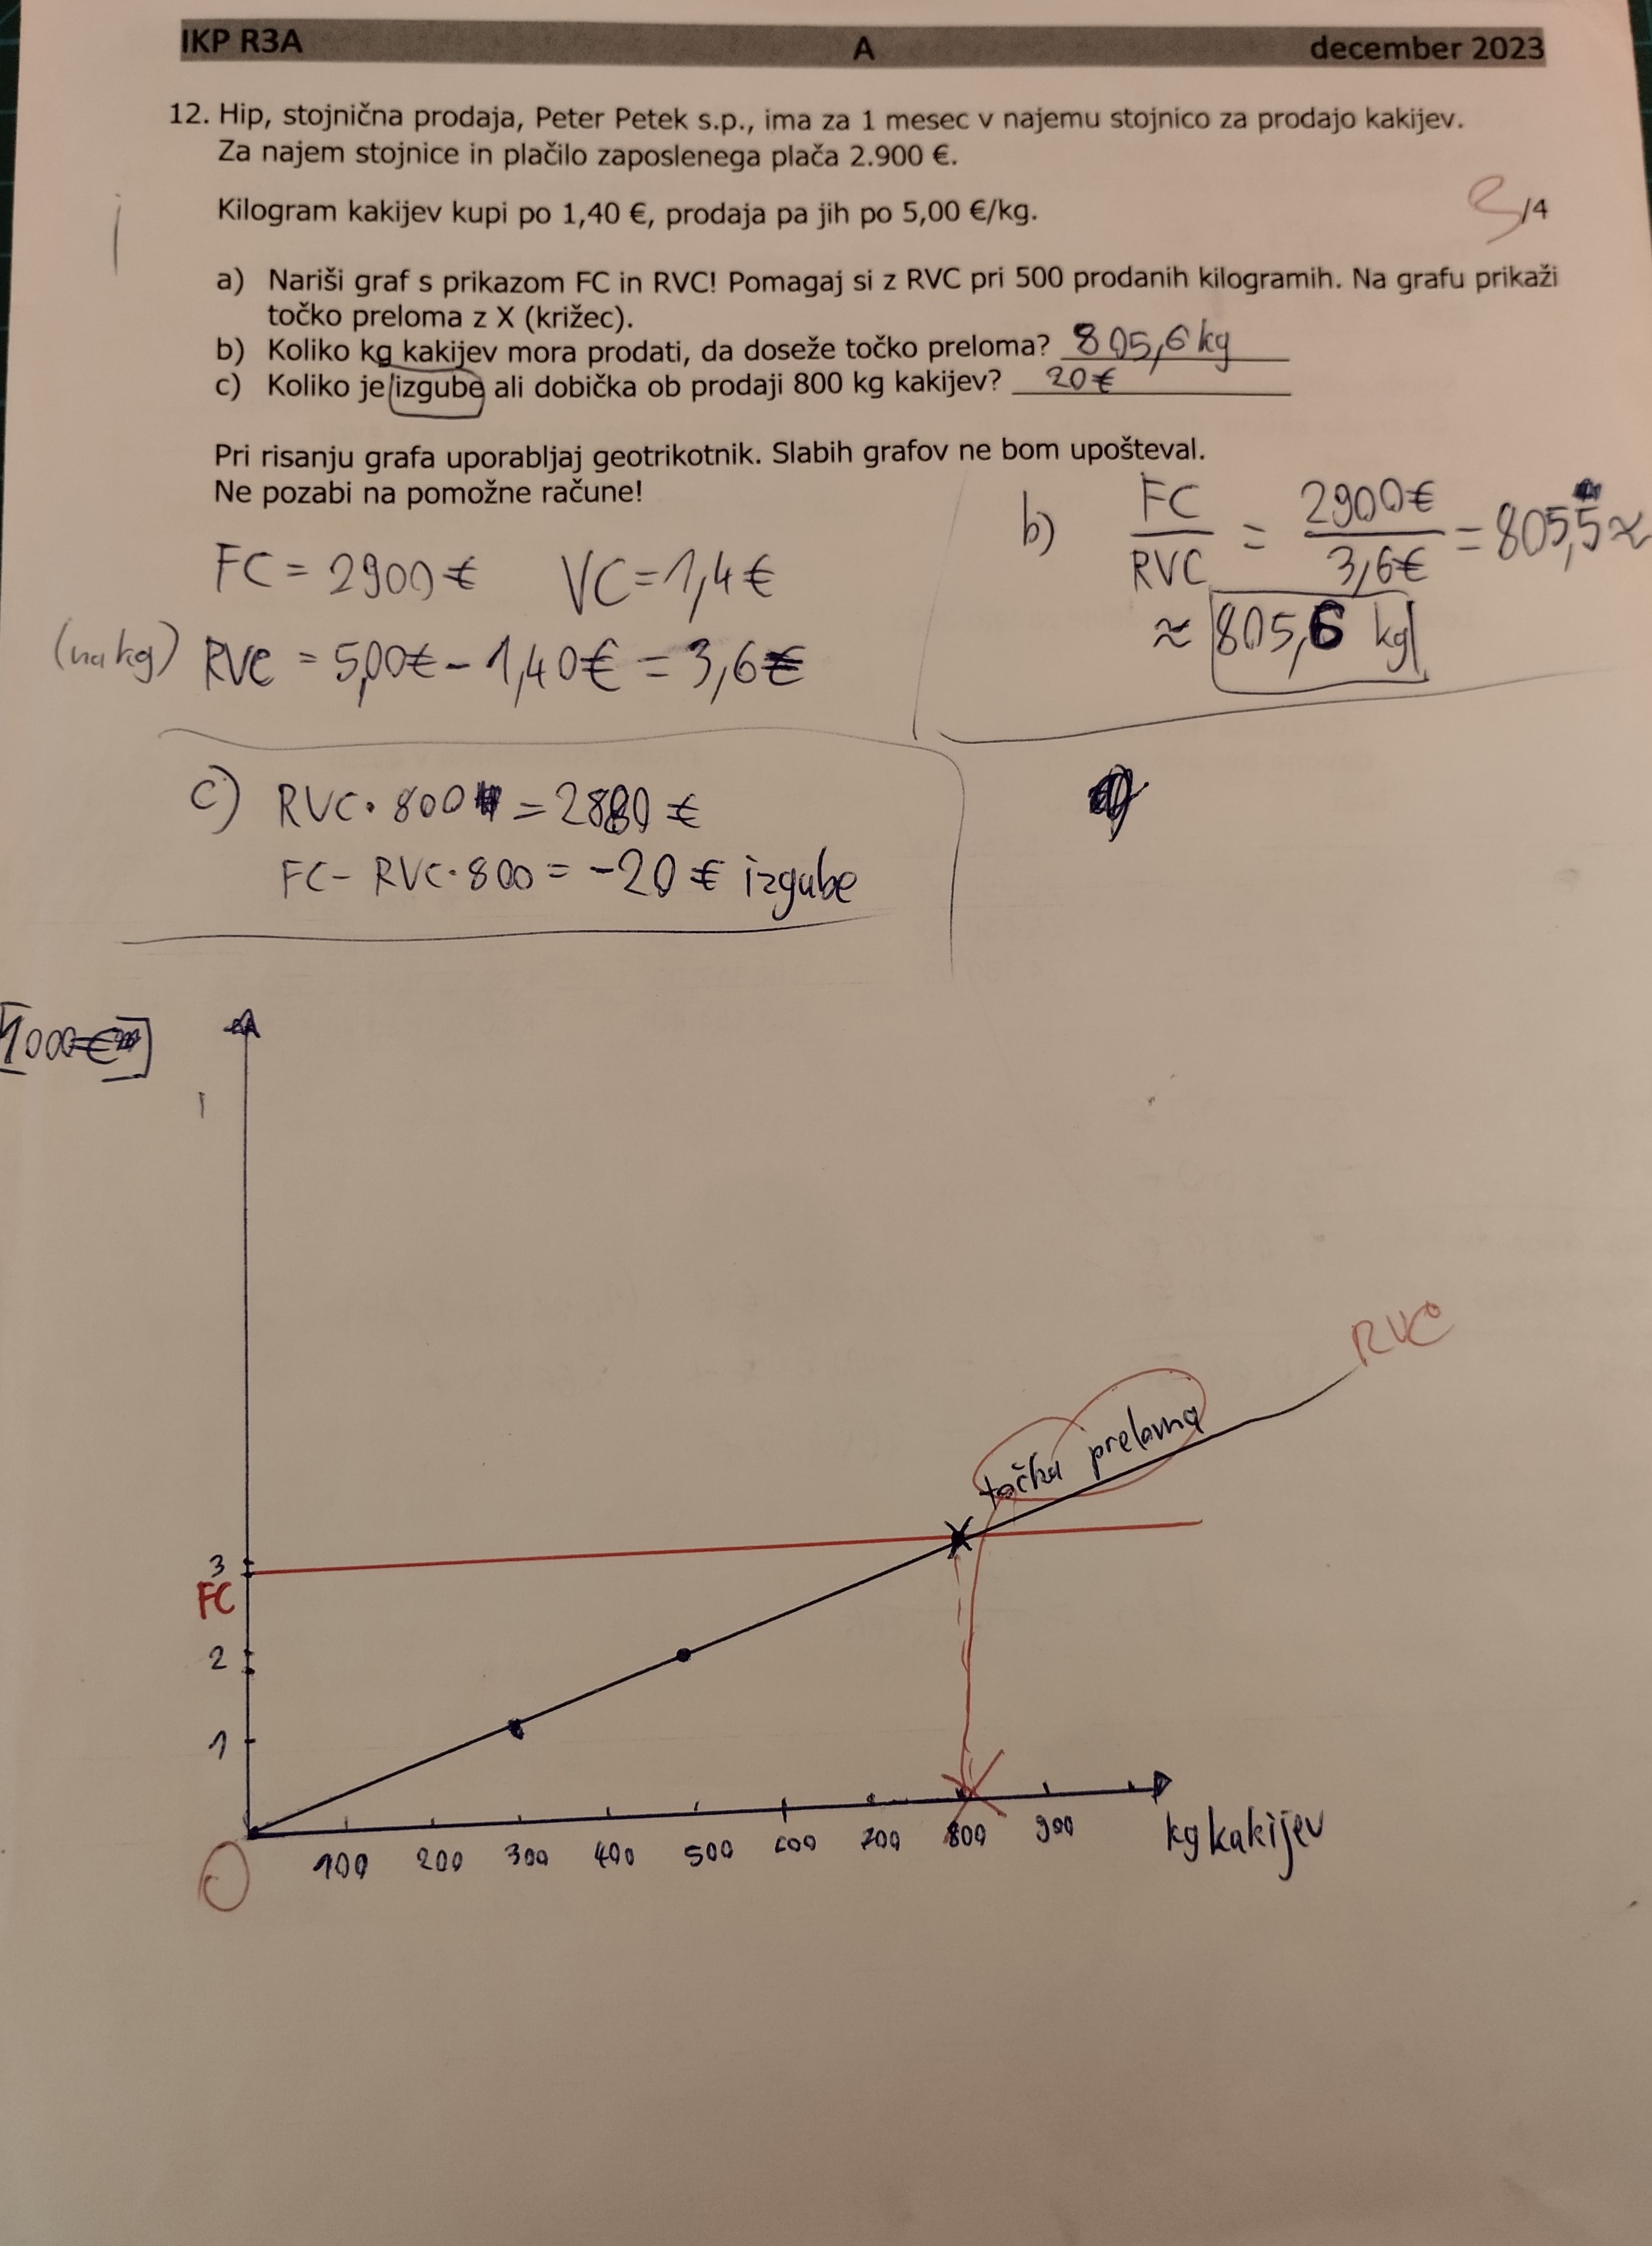 IKP R3A A december 2023
12. Hip, stojnična prodaja, Peter Petek s.p., ima za 1 mesec v najemu stojnico za prodajo kakijev.
Za najem stojnice in plačilo zaposlenega plača 2.900 €.
Kilogram kakijev kupi po 1,40 €, prodaja pa jih po 5,00 €/kg.
/4
a) Nariši graf s prikazom FC in RVC! Pomagaj si z RVC pri 500 prodanih kilogramih. Na grafu prikaži
točko preloma z X (križec).
b) Koliko kg kakijev mora prodati, da doseže točko preloma? 805,6 kg
c) Koliko je izgube ali dobička ob prodaji 800 kg kakijev? 20 €
Pri risanju grafa uporabljaj geotrikotnik. Slabih grafov ne bom upošteval.
Ne pozabi na pomožne račune!
FC = 2900 € VC = 1,4 €
(na kg) RVC = 5,00 € - 1,40 € = 3,6 €
b) FC / RVC = 2900 € / 3,6 € = 805,5 ≈
≈ 805,6 kg
c) RVC · 800 = 2880 €
FC - RVC · 800 = -20 € izgube
[1000 €]
RVC
točka preloma
3
FC
2
1
0
100 200 300 400 500 600 700 800 900 kg kakijev